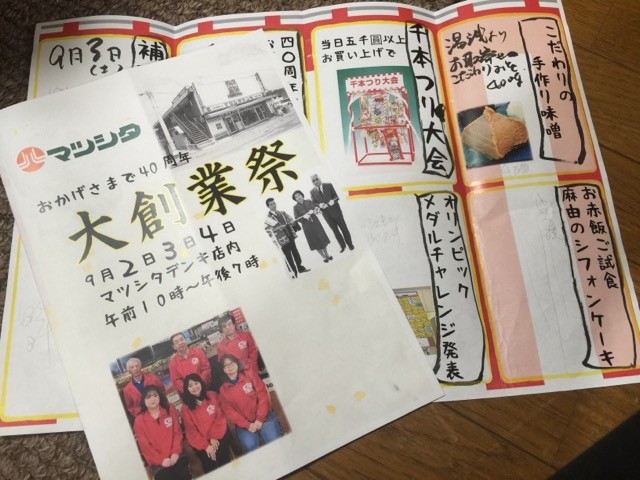 マツシタ
おかげさまで40周年
大創業祭
9月2日3日4日
マツシタデンキ店内
午前10時〜午後7時
9月3日
(土)
補
四〇周年
当日五千圓以上
お買い上げで
千本つり大会
千本つり大会
こだわりの
手作り味噌
湯浅より
お取寄せ
400g
オリンピック
メダルチャレンジ発表
お赤飯ご試食
麻由のシフォンケーキ